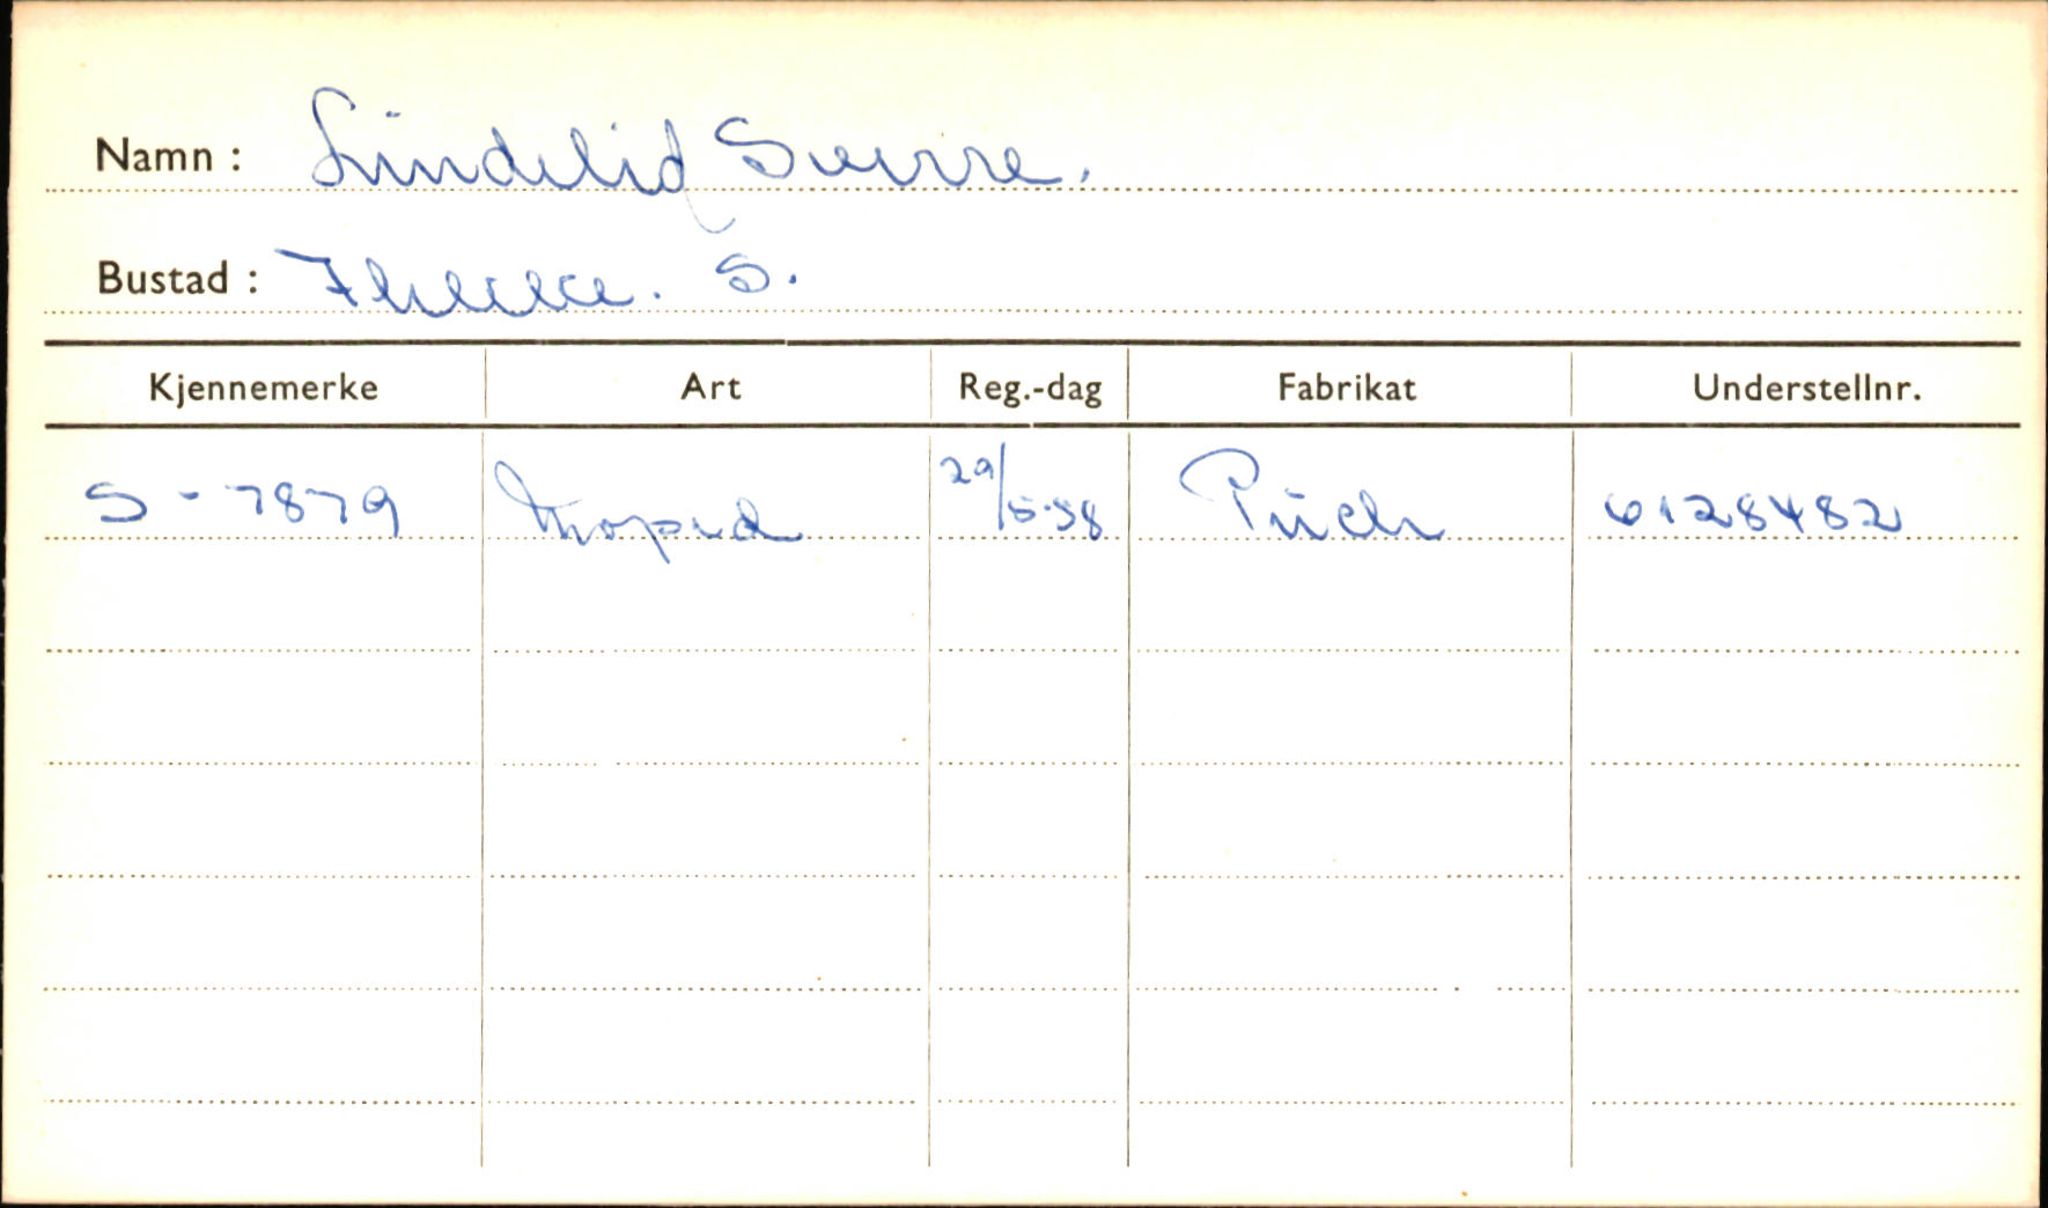 Namn : Lindelid Sverre.
Bustad : S.
Kjennemerke Art Reg.-dag Fabrikat Understellnr.
S - 7879 Moped 29/5-58 Puch 6128482